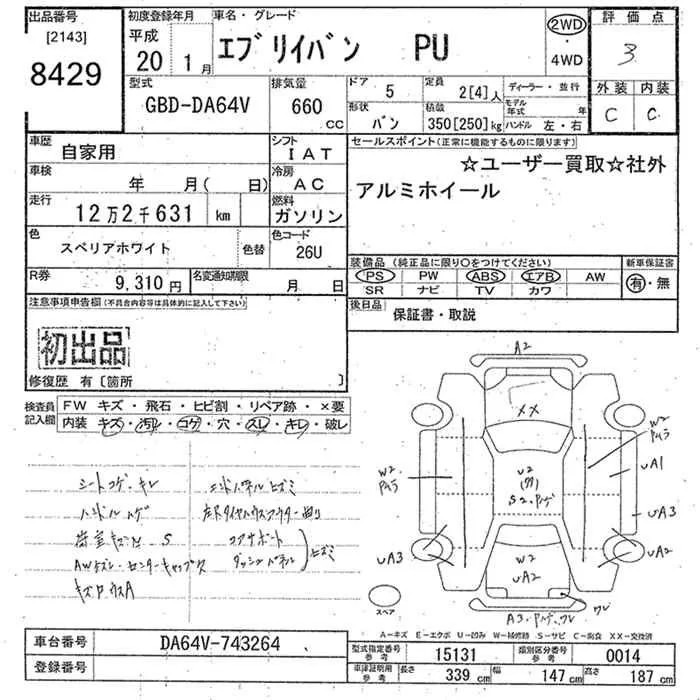 出品番号 初度登録年月 車名・グレード 評価点
[2143] 平成 エブリイバン PU 2WD 3
8429 20 1月 ・4WD
型式 排気量 ドア 5 定員 2[4]人 ディーラー・並行 外装 内装
GBD-DA64V 660 cc 形状 バン 積載 350[250]kg モデル年式 年 C C
ハンドル 左・右
車歴 自家用 シフト IAT セールスポイント(正常に機能するものに限ります)
車検 年 月( 日) 冷房 AC ☆ユーザー買取☆社外
アルミホイール
走行 12万2千631 km 燃料 ガソリン
色 スペリアホワイト 色替 色コード 26U
装備品(純正品に限り○をつけてください) 新車保証書
R券 9,310円 名変通知期限 月 日 PS PW ABS エアB AW 有・無
SR ナビ TV カワ
注意事項申告欄(不具合内容等は具体的に記入して下さい) 後日品 保証書・取説
初出品
修復歴 有〔箇所 〕
検査員記入欄 FW キズ・飛石・ヒビ割・リペア跡・×要
内装 キズ・汚れ・コゲ・穴・スレ・キレ・破レ
シートコゲ・キレ
ハンドルハゲ
コアサポート
ヒズミ
A2
XX
W2
UA1
W2
UA3
UA3
UA2
W2
UA2
スペア
A-キズ E-エクボ U-凹み W-補修跡 S-サビ C-腐食 XX-交換済
車台番号 DA64V-743264 型式指定番号 参考 15131 類別区分番号 参考 0014
登録番号 車庫証明用 参考 長さ 339cm 幅 147cm 高さ 187cm